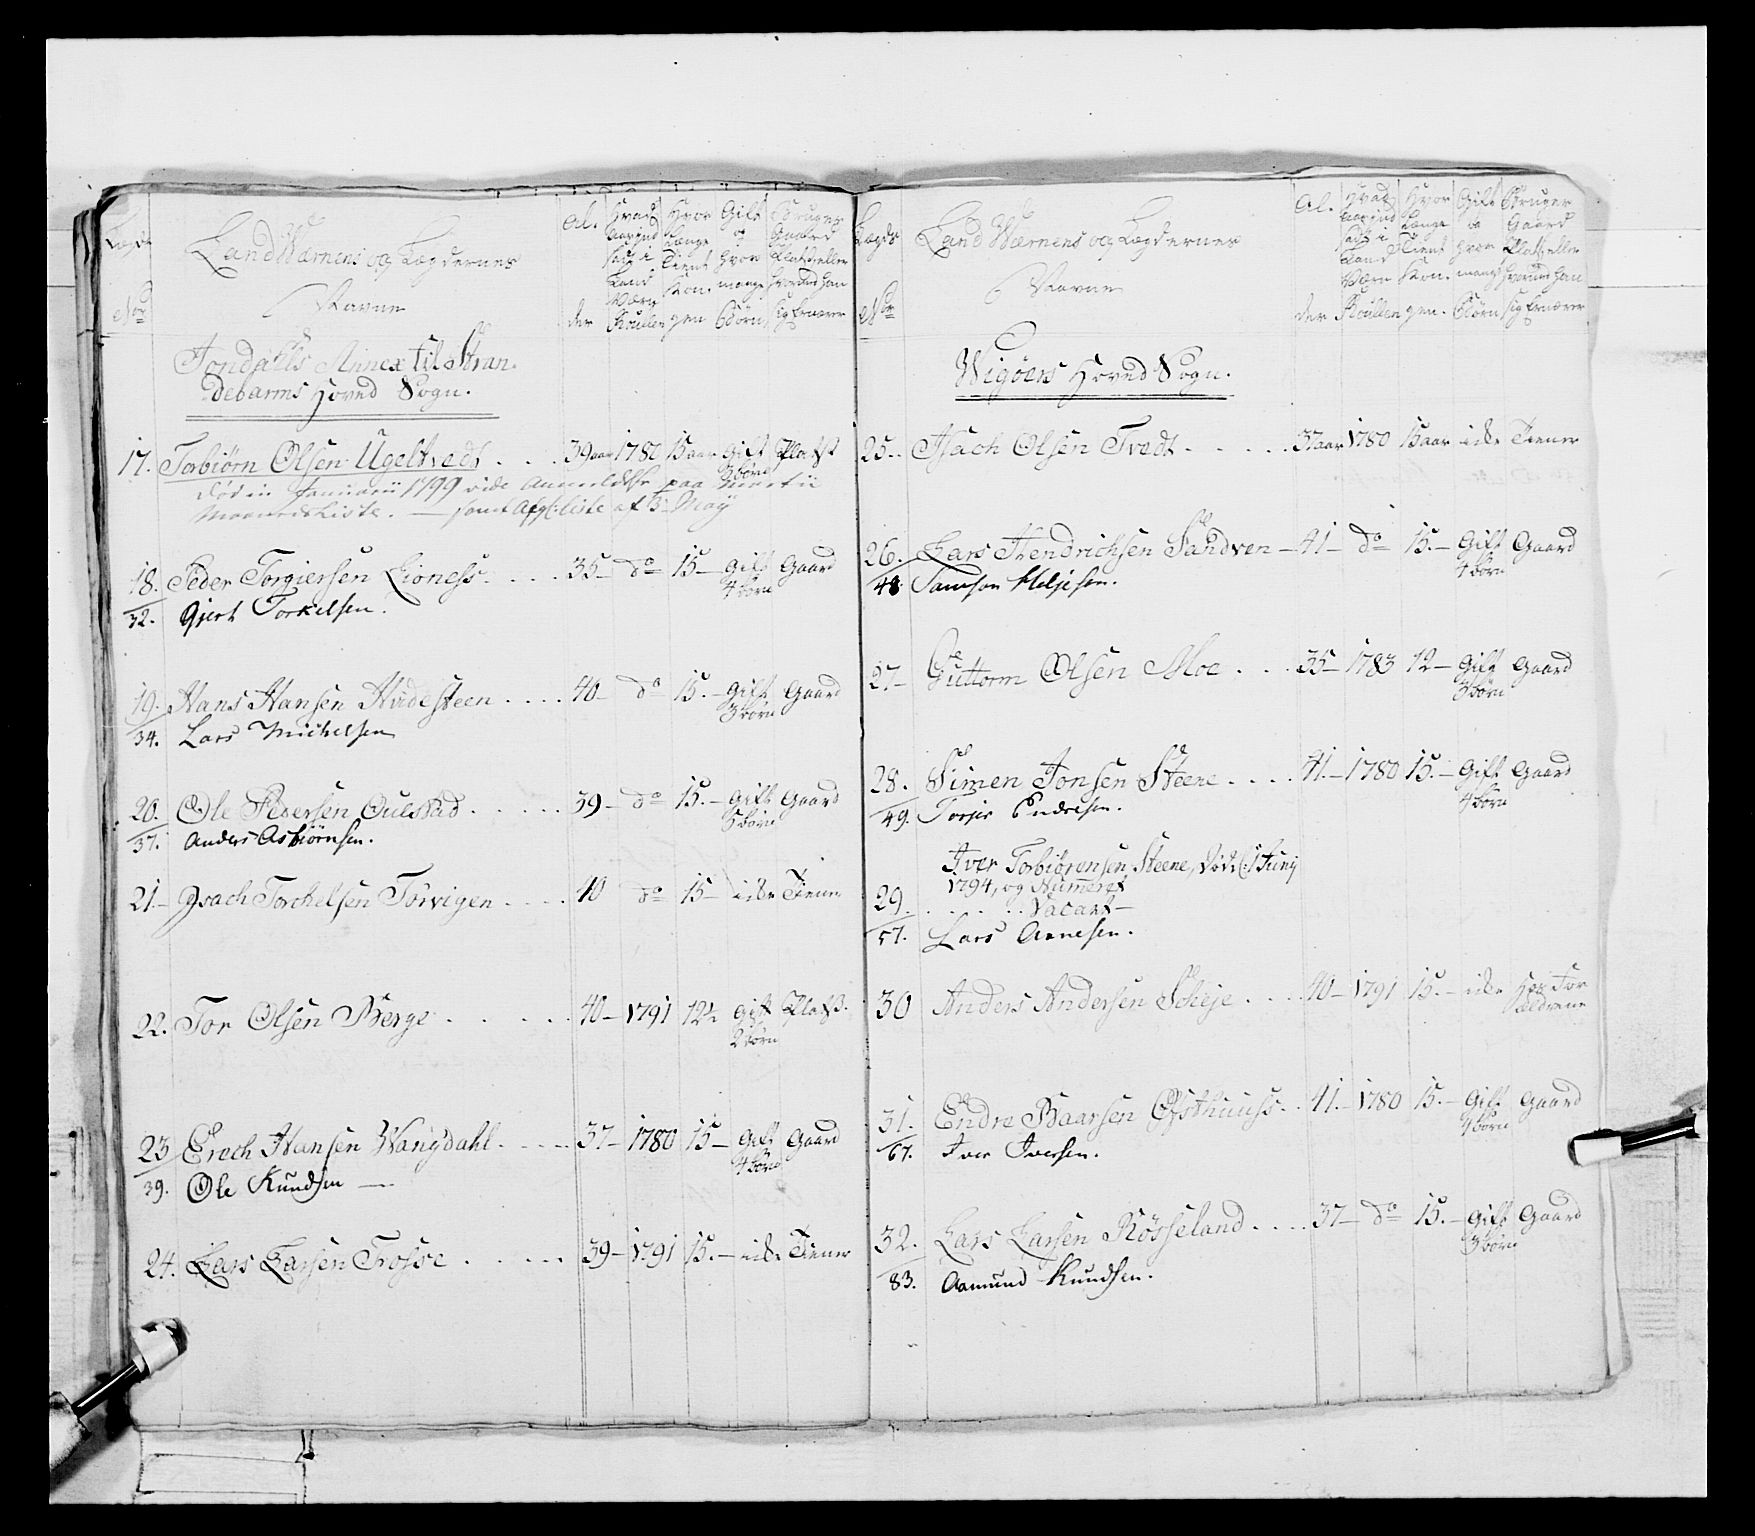 Lægds
LandWærnens og Lægdernes
Navne
No
Al.
der
Hvad Aar ind sadt i Land Værn Roullen
Hvor Længe Tient Kongen.
Gift og Hvor mange Børn
Bruger Gaard Platz eller Hvorved Han Sig Ernærer
Jondahls Annex til Stran-
debarms Hoved Sogn.
17. Torbiørn Olsen Ugeltvedt . . . 39 aar 1780 15 aar Gift Platst
3 børn
død in Januarii 1799 vide Anmeldelse paa Martii
Maaneds Liste. — samt Afg: Liste af 3 May
18. Peder Torgiersen Lioness. . . . 35 — do 15 — Gift Gaard
4 børn
32. Gjert Torkelsen.
19. Hans Hansen Hvidesteen . . . . 40 — do 15. — Gift Gaard
3 børn
34. Lars Michelsen
20. Ole Pedersen Oulstad . . . . . 39 — do 15. — Gift Gaard
5 børn
37. Anders Asbiørnsen.
21. — Isach Torchelsen Torvigen . . . . 40 do 15 — icke Tiener
22. Tor Olsen Berge . . . . . 40 — 1791 12½ Gift Platz.
2 børn
23 Erech Hansen Wangdahl . . . . 37 — 1780 15 — Gift Gaard
4 børn
39. Ole Knudsen —
24. Lars Larsen Trosse . . . . 39 — 1791 15. — icke Tiener
Lægds
Land Wærnens og Lægdernes
Navne
No
Al.
der
Hvad Aar ind sadt i Land Værn Roullen
Hvor Længe Tient Kongen.
Gift og Hvor mange Børn
Bruger Gaard Platz eller Hvorved Han Sig Ernærer
Wigøers Hoved Sogn.
25. Isach Olsen Tvedt . . . . . 37 aar 1780 15 aar icke Tiener
26. Lars Hendrichsen Sandven — 41 — do 15. — Gift Gaard
4 børn
48. Samson Heljesen.
27 — Guttorm Olsen Moe . . . 35 — 1783 12 — Gift Gaard
3 børn
28. Simen Jonsen Steene . . . . 41. — 1780 15. — Gift Gaard
4 børn
49. Torger Endresen.
Iver Torbiørensen Steene, Død Junij
1794, og Numeret
29. . . . . . Vacant —
57. Lars Arnesen.
30 Anders Andersen Scheje . . . . 40 — 1791 15. — icke Hos For
ældrene
31. Endre Baarsen Ofsthuuss . . 41. — 1780 15. — Gift Gaard
4 børn
67. Iver Iversen.
32. Lars Larsen Rösseland . . . . 37 — do 15. — Gift Gaard
3 børn
83. Aamund Knudsen.